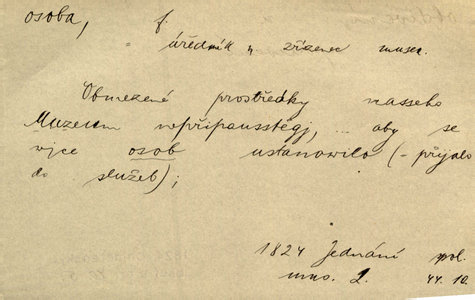 osoba, f.
= úředník n. zřízenec musea.
Obmezené prostředky nasseho
Muzeum nepřipausstěgj, ... aby se
wjce osob ustanowilo (= přijalo
do služeb);
1824 Jednání spol.
mus. 2. 44. 10.